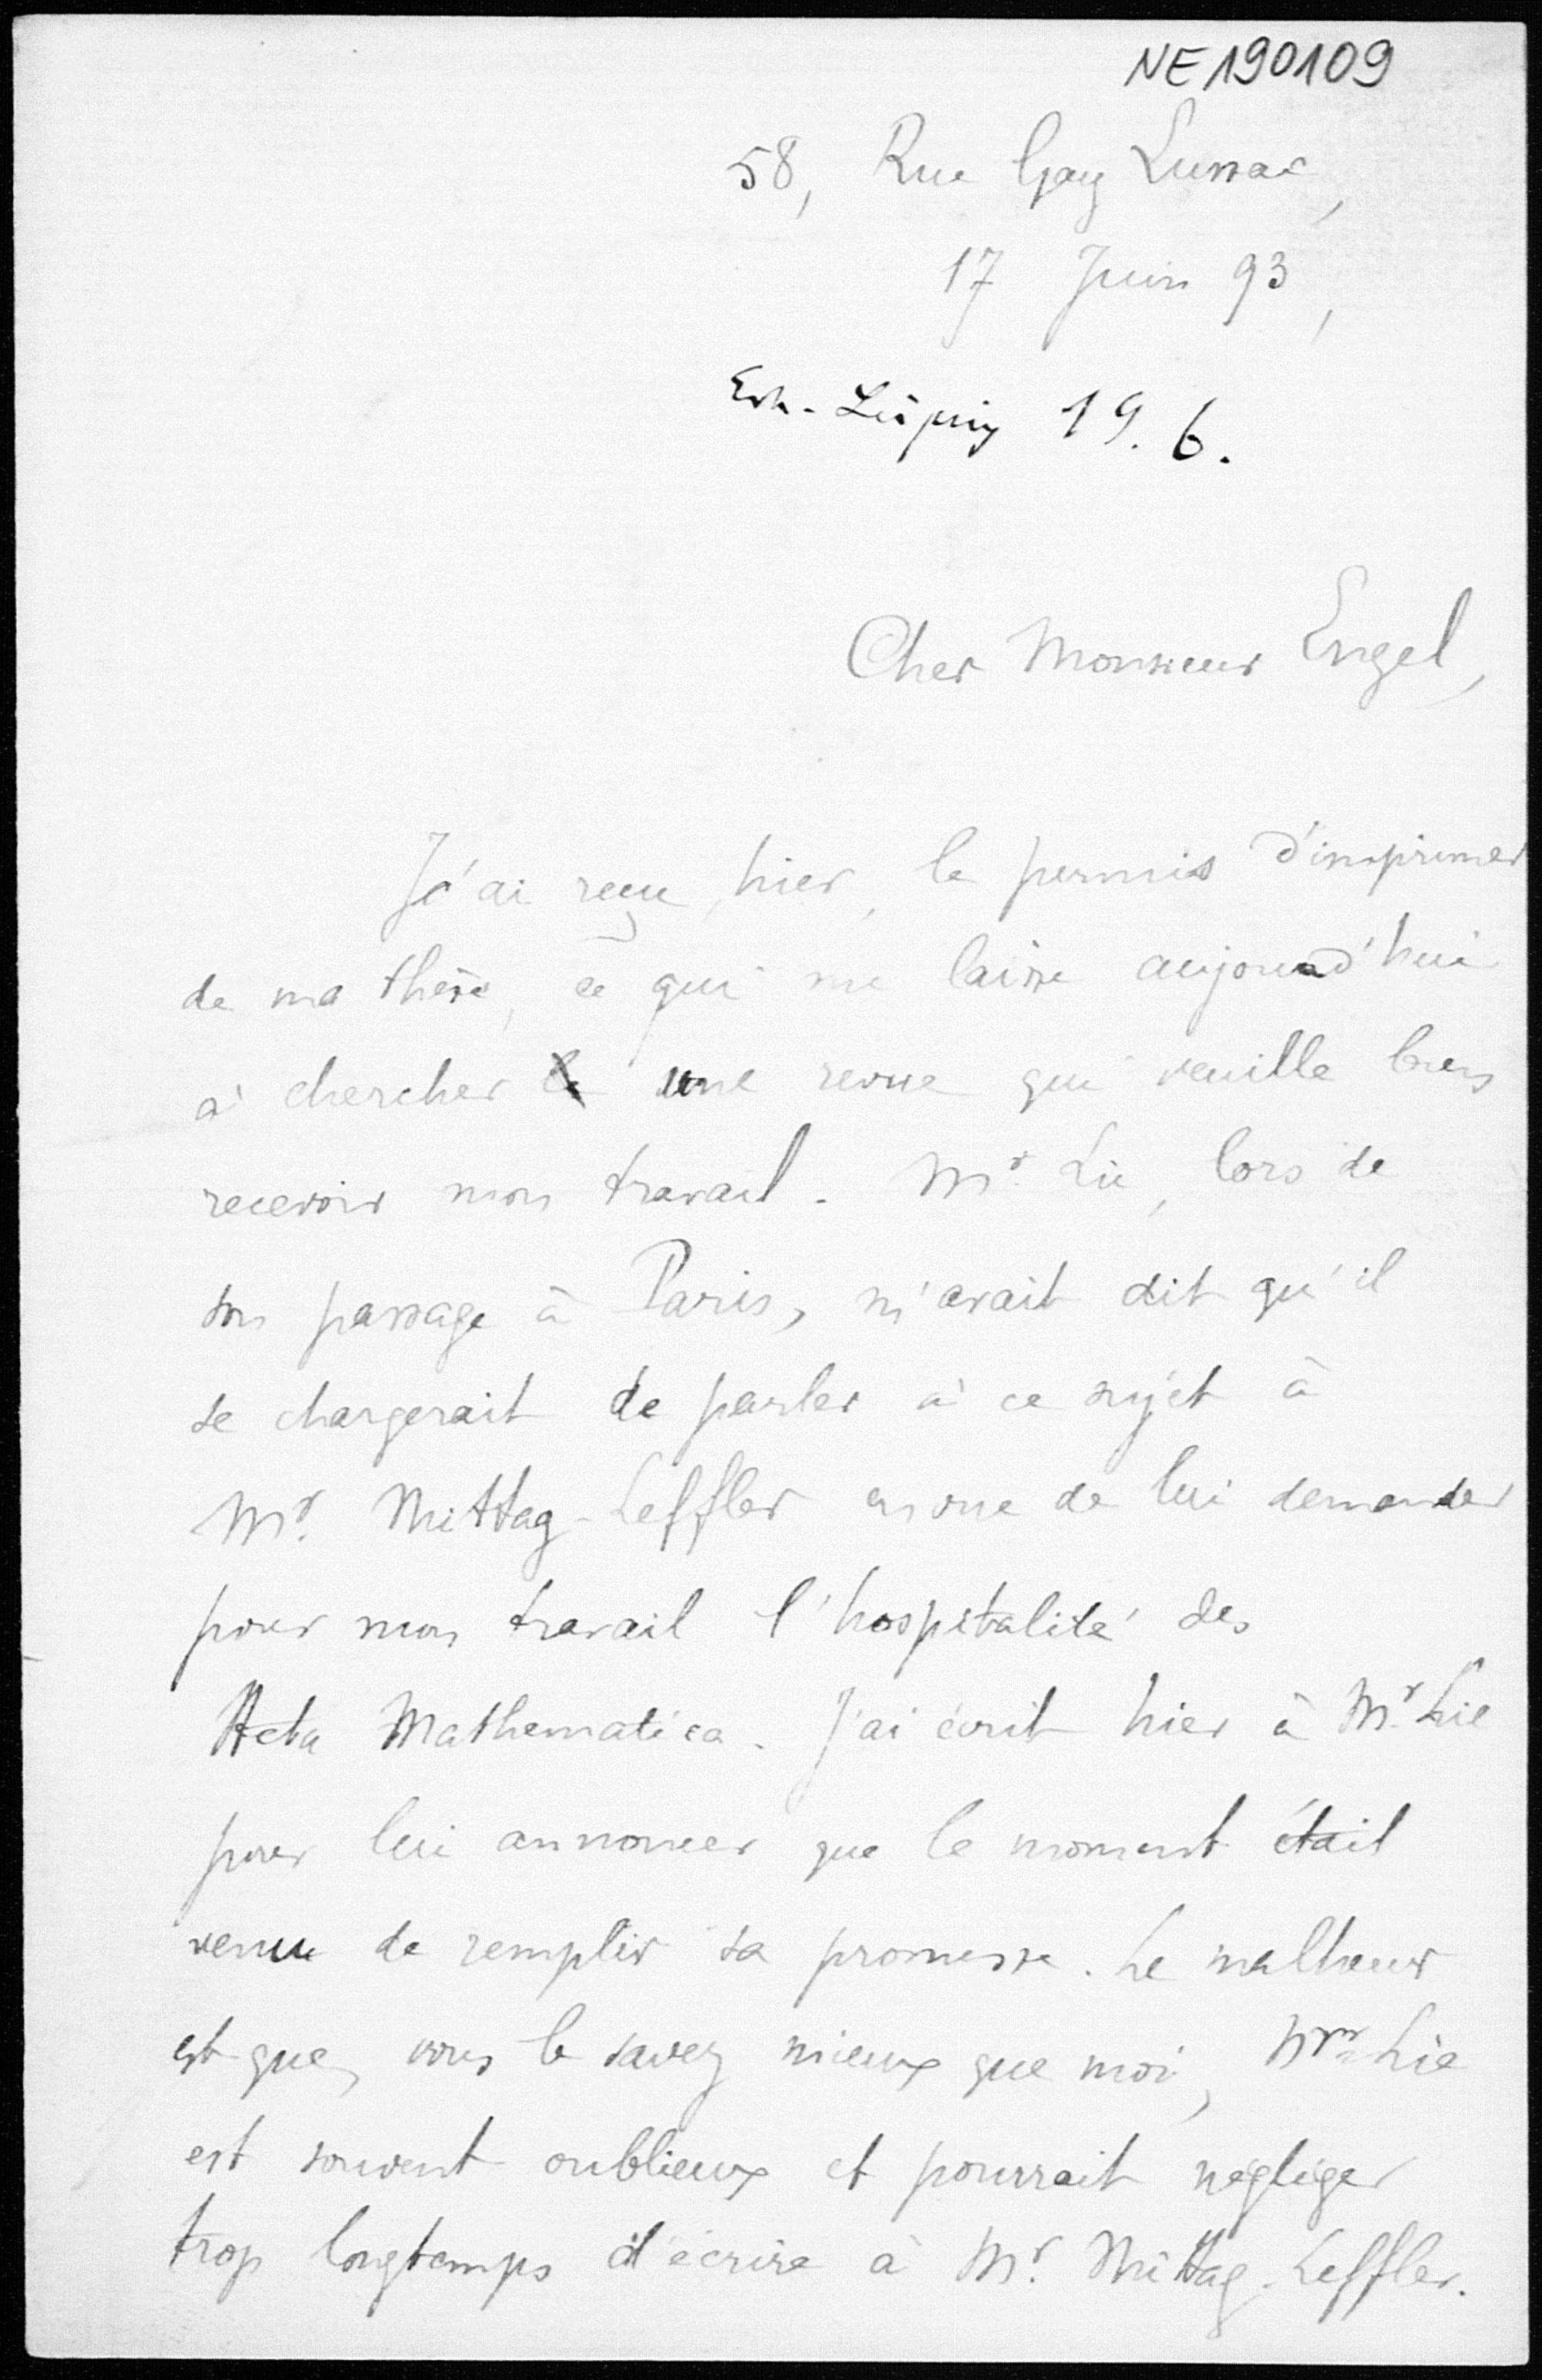 NE190109
58, Rue Gay Lussac,
17 Juin 93,
Erh. Leipzig 19. 6.
Cher Monsieur Engel,
J'ai reçu, hier, le permis d'imprimer
de ma thèse, ce qui me laisse aujourd'hui
à chercher une revue qui veuille bien
recevoir mon travail. Mr. Lie, lors de
son passage à Paris, m'avait dit qu'il
se chargerait de parler à ce sujet à
Mr. Mittag-Leffler en vue de lui demander
pour mon travail l'hospitalité des
Acta Mathematica. J'ai écrit hier à Mr. Lie
pour lui annoncer que le moment était
venu de remplir sa promesse. Le malheur
est que, vous le savez mieux que moi, Mr. Lie
est souvent oublieux et pourrait négliger
trop longtemps d'écrire à Mr. Mittag-Leffler.